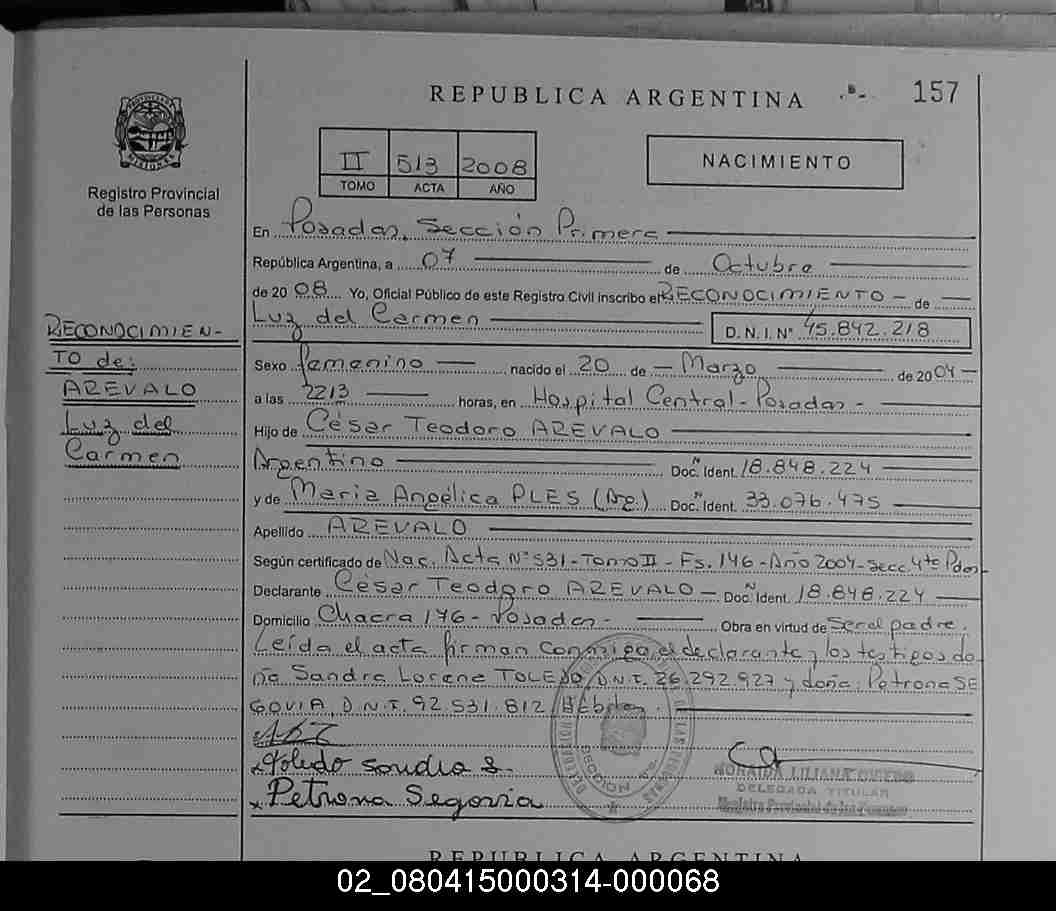 REPUBLICA ARGENTINA
157
PROVINCIA DE MISIONES
Registro Provincial
de las Personas
II 513 2008
TOMO ACTA AÑO
NACIMIENTO
En Posadas, Sección Primera
República Argentina, a 07 de Octubre
de 2008 Yo, Oficial Público de este Registro Civil inscribo el RECONOCIMIENTO - de
Luz del Carmen D.N.I. Nº 45.842.218
RECONOCIMIEN-
TO de:
AREVALO
Luz del
Carmen
Sexo femenino nacido el 20 de Marzo de 2004
a las 2213 horas, en Hospital Central - Posadas -
Hijo de César Teodoro AREVALO
Argentino Doc. Ident. 18.848.224
y de María Angélica PLES (Arg.) Doc. Ident. 33.076.475
Apellido AREVALO
Según certificado de Nac. Acta Nº 531 - Tomo II - Fs. 146 - Año 2004 - Secc 4ta Pdas
Declarante César Teodoro AREVALO - Doc. Ident. 18.848.224
Domicilio Chacra 176 - Posadas - Obra en virtud de Ser el padre.
Leída el acta firman conmigo el declarante y los testigos do
ña Sandra Lorena TOLEDO, D.N.I. 26.292.927 y doña: Petrona SE
GOVIA, D.N.I. 92.531.812 Hábiles.
Toledo Sandra L.
Petrona Segovia
DELEGADA TITULAR
Registro Provincial de las Personas
REPUBLICA ARGENTINA
02_080415000314-000068